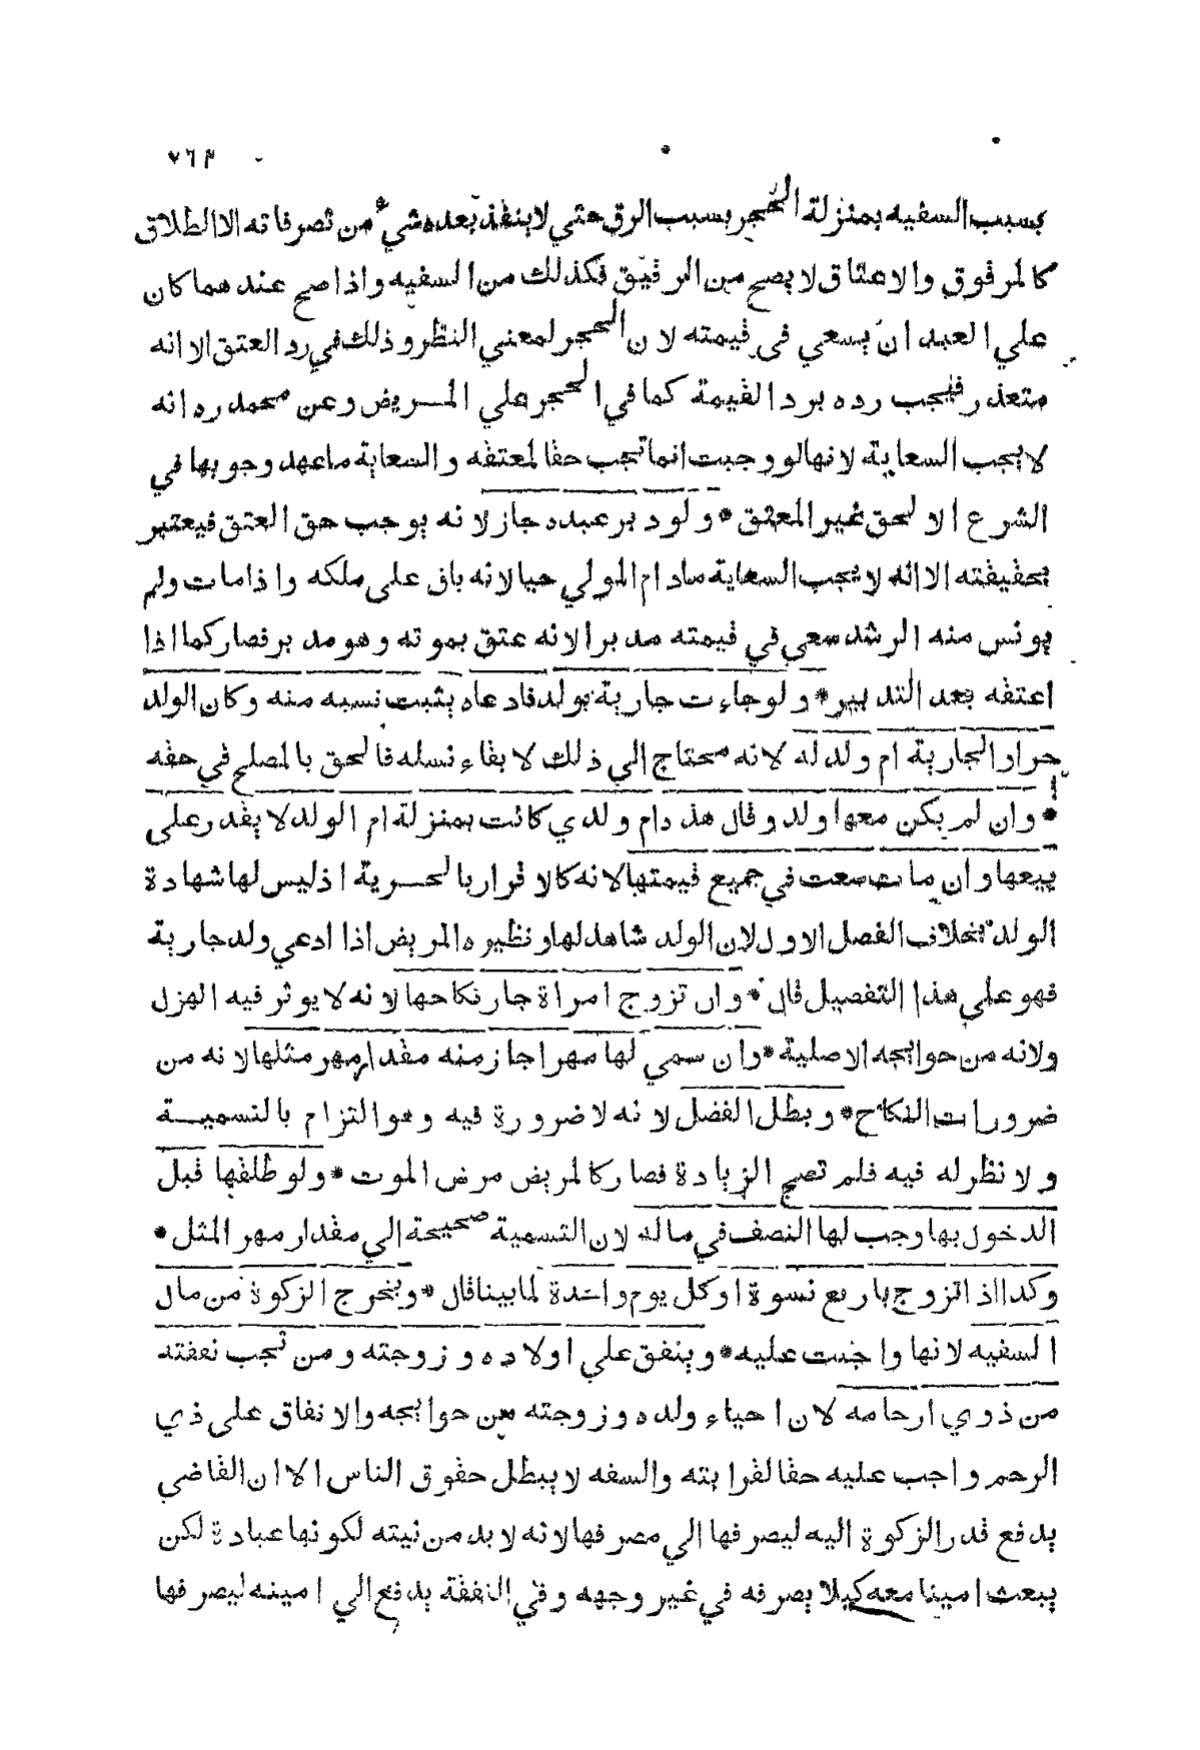 ٧٦٣
بسبب السفيه بمنزلة الحجر بسبب الرق حتي لا ينفذ بعده شيء من تصرفاته الا الطلاق
كالمرقوق والاعتاق لا يصح من الرقيق فكذلك من السفيه واذا صح عندهما كان
علي العبد ان يسعي في قيمته لان الحجر لمعني النظر وذلك في رد العتق الا انه
متعذر فيجب رده برد القيمة كما في الحجر علي المريض وعن محمد ره انه
لا يجب السعاية لانها لو وجبت انما تجب حقا لمعتقه والسعاية ما عهد وجوبها في
الشرع الا لحق غير المعتق * ولو دبر عبده جاز لانه يوجب حق العتق فيعتبر
بحقيقته الا انه لا يجب السعاية ما دام المولي حيا لانه باق علي ملكه واذا مات ولم
يونس منه الرشد سعي في قيمته مدبرا لانه عتق بموته وهو مدبر فصار كما اذا
اعتقه بعد التدبير * ولو جاءت جارية بولد فادعاه يثبت نسبه منه وكان الولد
حرا والجارية ام ولد له لانه محتاج الي ذلك لابقاء نسله فالحق بالمصلح في حقه
* وان لم يكن معها ولد وقال هذه ام ولدي كانت بمنزلة ام الولد لا يقدر علي
بيعها وان مات سعت في جميع قيمتها لانه كالاقرار بالحرية اذ ليس لها شهادة
الولد بخلاف الفصل الاول لان الولد شاهد لها ونظيره المريض اذا ادعي ولد جارية
فهو علي هذا التفصيل قال * وان تزوج امراة جاز نكاحها لانه لا يوثر فيه الهزل
ولانه من حوايجه الاصلية * وان سمي لها مهرا جاز منه مقدار مهر مثلها لانه من
ضرورات النكاح * وبطل الفضل لانه لا ضرورة فيه وهو التزام بالتسميـة
ولا نظر له فيه فلم تصح الزيادة فصار كالمريض مرض الموت * ولو طلقها قبل
الدخول بها وجب لها النصف في ماله لان التسمية صحيحة الي مقدار مهر المثل *
وكذا اذا تزوج باربع نسوة او كل يوم واحدة لما بينا قال * ويخرج الزكوة من مال
السفيه لانها واجبت عليه * وينفق علي اولاده وزوجته ومن تجب نفقته
من ذوي ارحامه لان احياء ولده وزوجته من حوايجه والانفاق علي ذي
الرحم واجب عليه حقا لقرابته والسفه لا يبطل حقوق الناس الا ان القاضي
يدفع قدر الزكوة اليه ليصرفها الي مصرفها لانه لا بد من نيته لكونها عبادة لكن
يبعث امينا معه كيلا يصرفه في غير وجهه وفي النفقة يدفع الي امينه ليصرفها